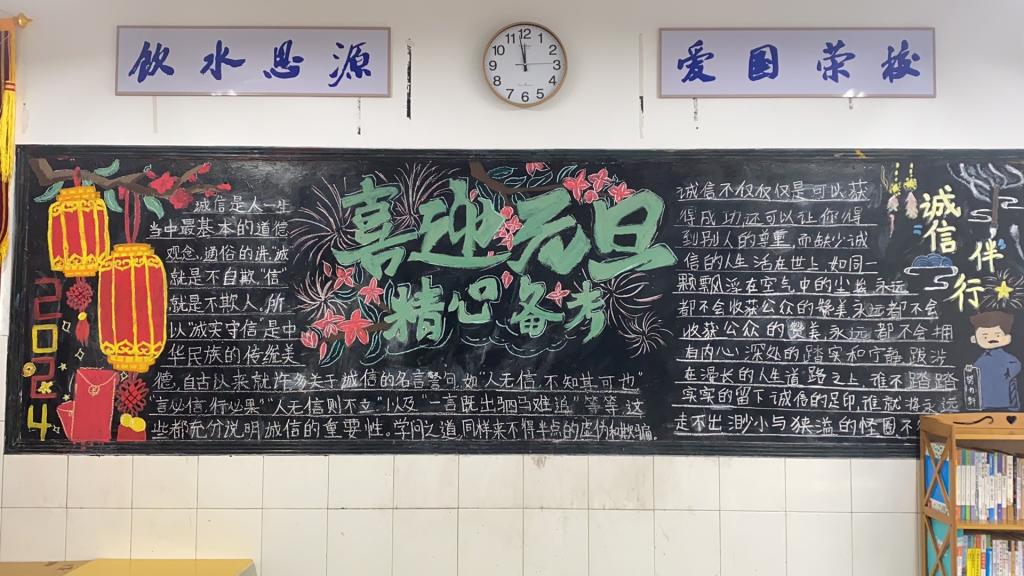 飲水思源
爱国荣校
12
1
2
3
4
5
6
7
8
9
10
11
2024
喜迎元旦
精心备考
诚信是人一生
当中最基本的道德
观念,通俗的讲,诚
就是不自欺"信"
就是不欺人,所
以"诚实守信"是中
华民族的传统美
德,自古以来就许多关于诚信的名言警句,如"人无信,不知其可也"
"言必信,行必果""人无信则不立"以及"一言既出驷马难追"等等,这
些都充分说明诚信的重要性。学问之道,同样来不得半点的虚伪和欺骗。
诚信不仅仅仅是可以获
得成功还可以让你得
到别人的尊重,而缺少诚
信的人生活在世上,如同一
颗飘浮在空气中的小尘,永远
都不会收获公众的赞美永远都不会
收获公众的赞美永远都不会拥
有内心深处的踏实和宁静,跋涉
在漫长的人生道路之上,谁不踏踏
实实的留下诚信的足印,谁就将永远
走不出渺小与狭隘的怪圈不
诚信
伴
行